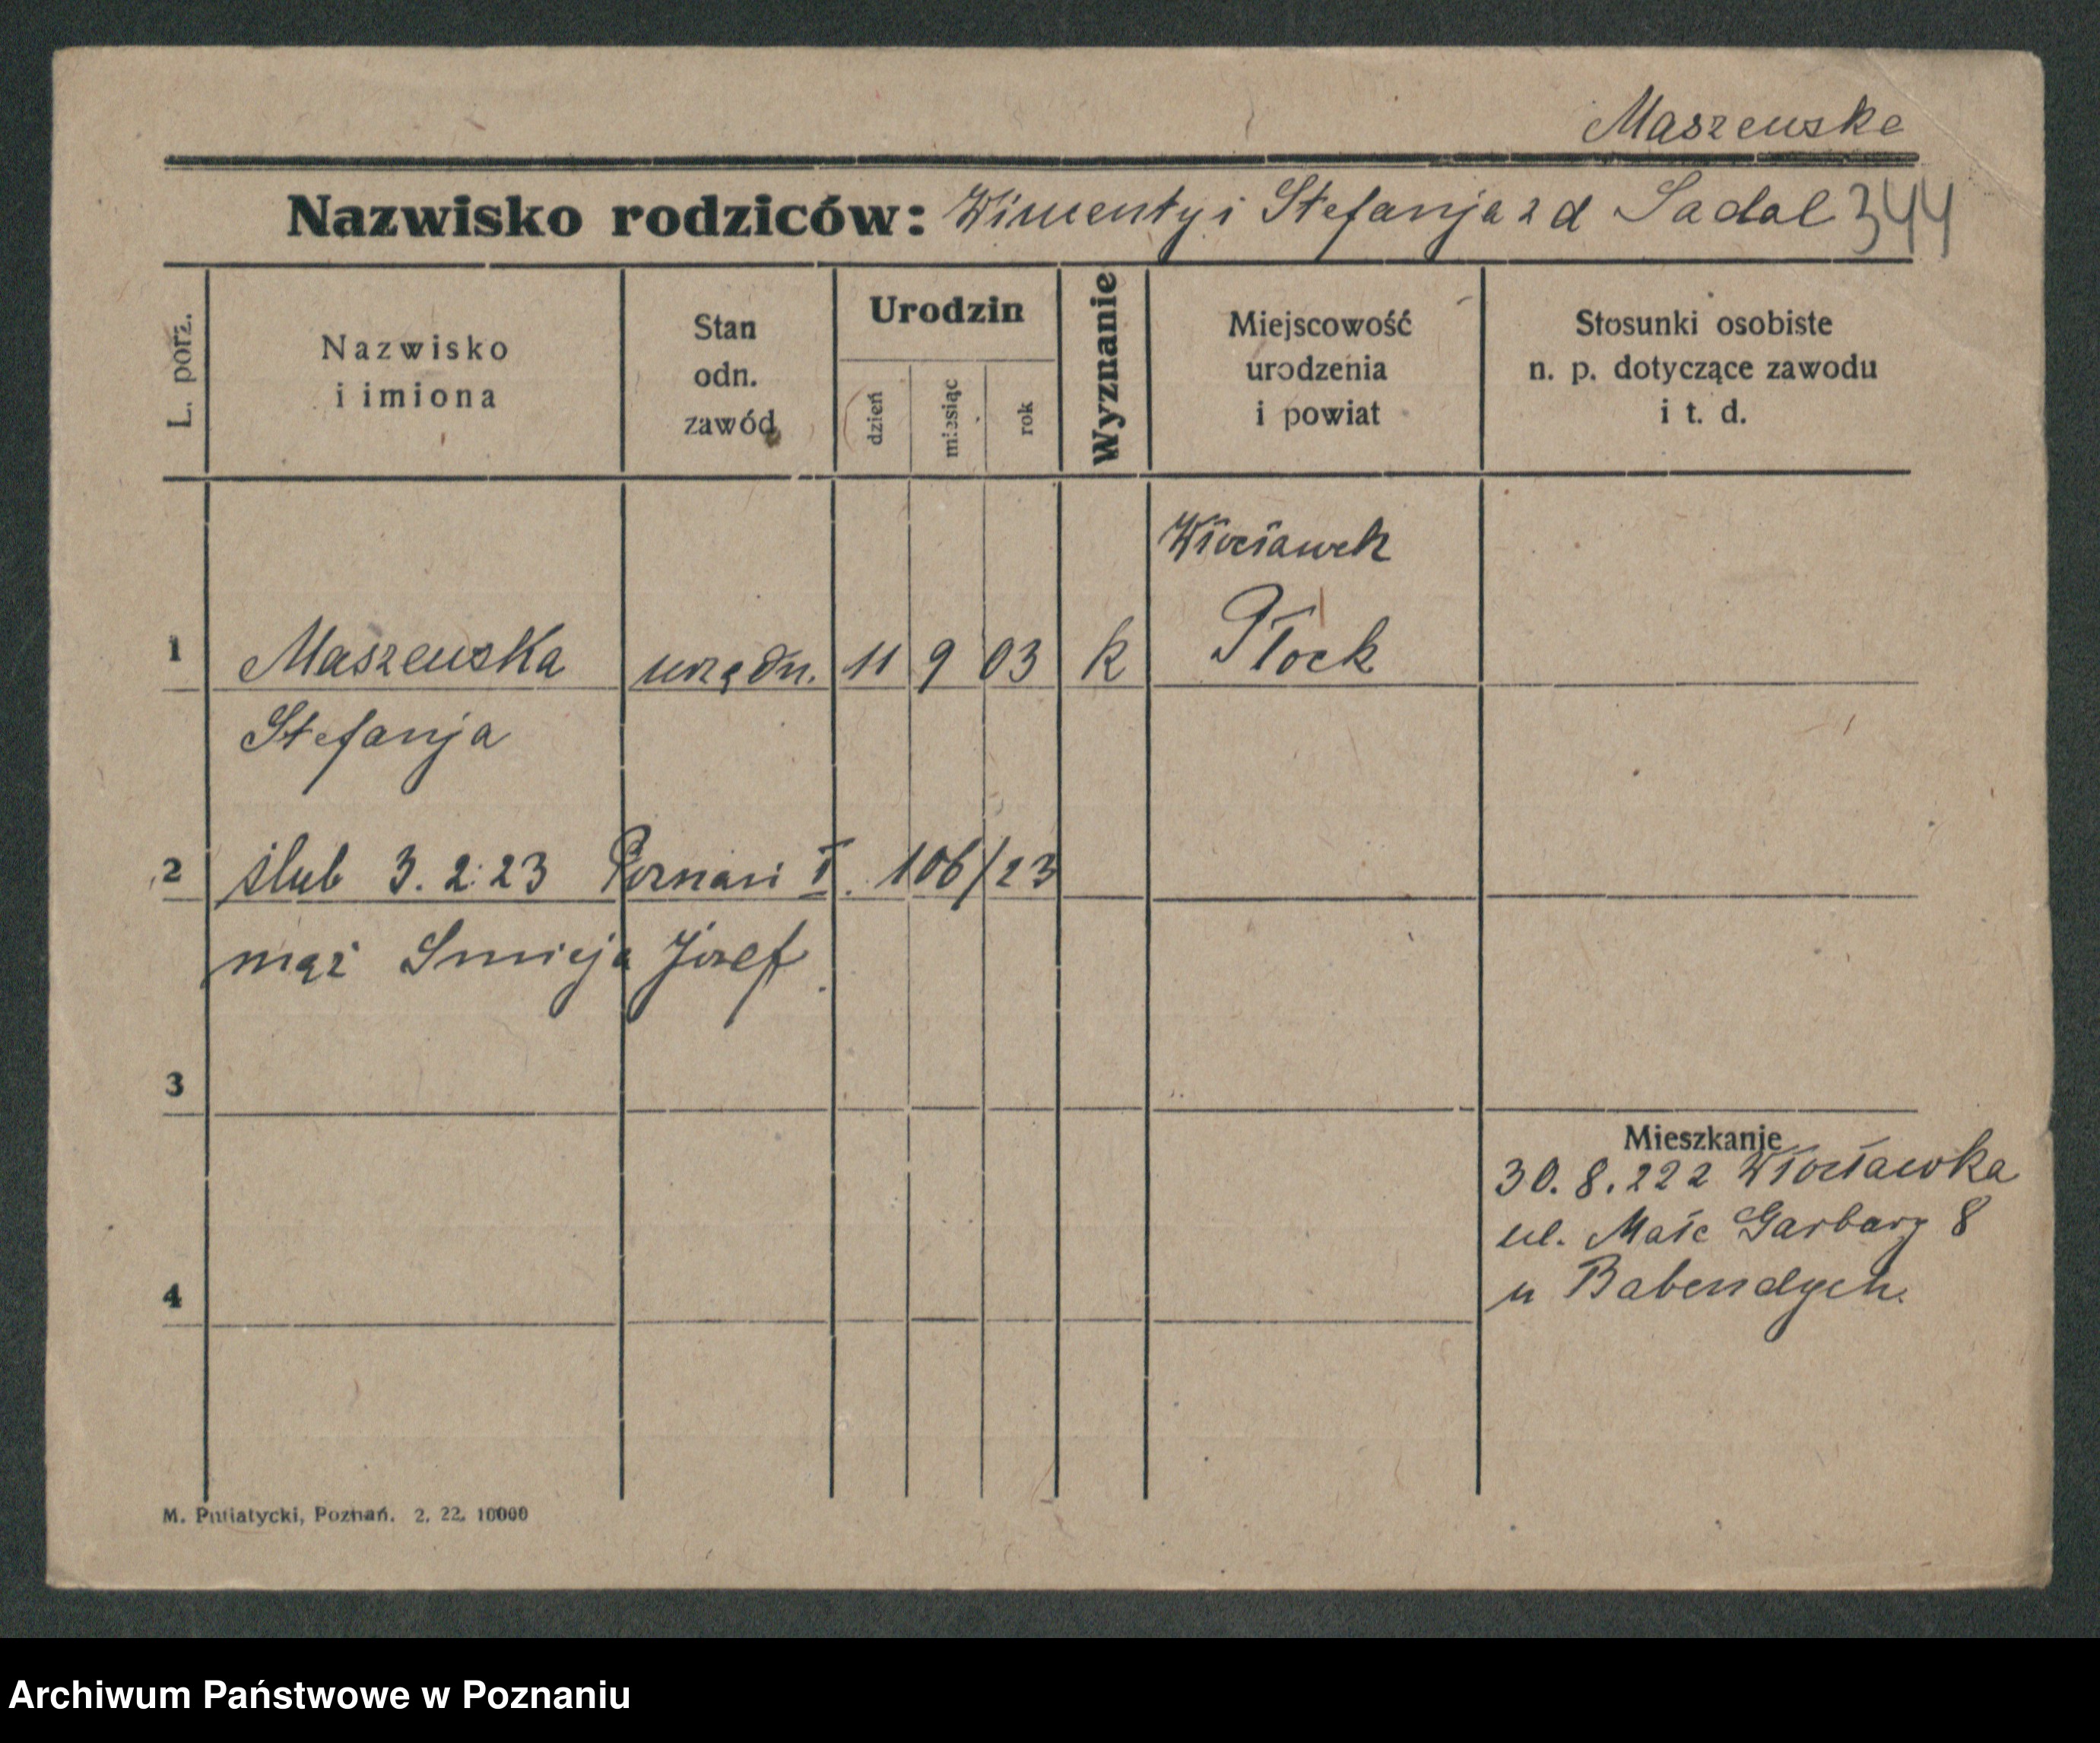 Maszewska
Nazwisko rodziców: Wincenty i Stefanja z d Sadal 344
L. porz.
Nazwisko
i imiona
Stan
odn.
zawód
Urodzin
dzień
miesiąc
rok
Wyznanie
Miejscowość
urodzenia
i powiat
Stosunki osobiste
n. p. dotyczące zawodu
i t. d.
Włocławek
1 Maszewska urzędn. 11 9 03 k Płock
Stefanja
2 ślub 3.2.23 Poznań I. 106/23
mąż Smieja Józef.
3
Mieszkanie
30.8.222 Włocławka
ul. Małe Garbary 8
u Babendych.
4
M. Putiatycki, Poznań. 2. 22. 10000
Archiwum Państwowe w Poznaniu